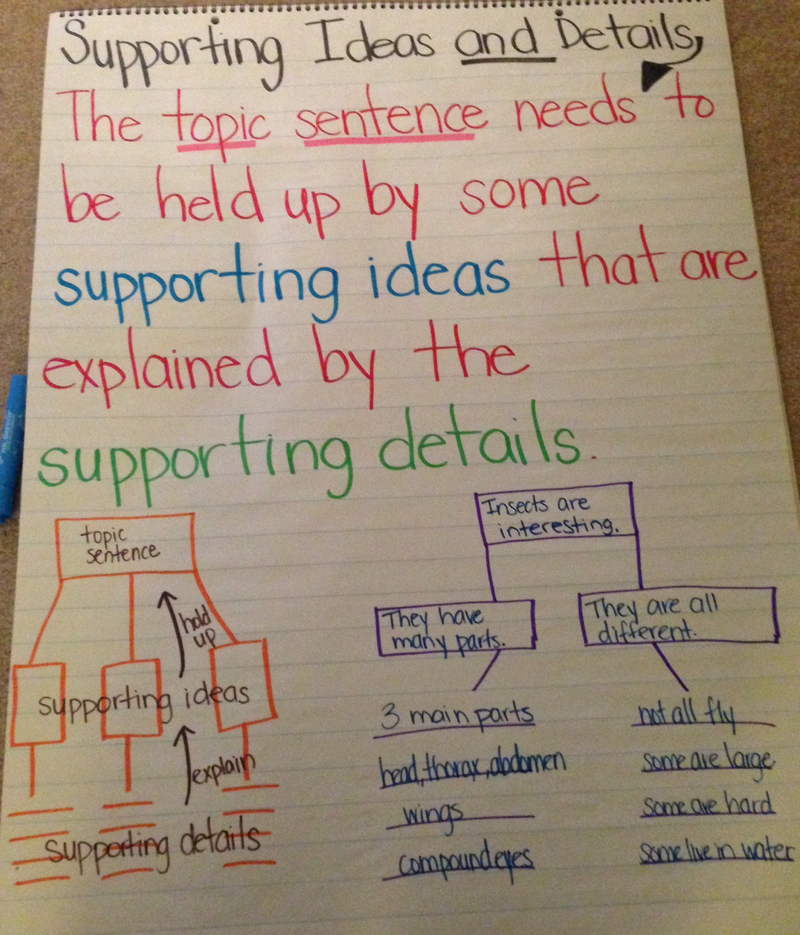 Supporting Ideas and Details,
The topic sentence needs to
be held up by some
supporting ideas that are
explained by the
supporting details.
topic
sentence
hold
up
supporting ideas
explain
supporting details
Insects are
interesting.
They have
many parts.
3 main parts
head, thorax, abdomen
wings
compound eyes
They are all
different.
not all fly
some are large
some are hard
some live in water